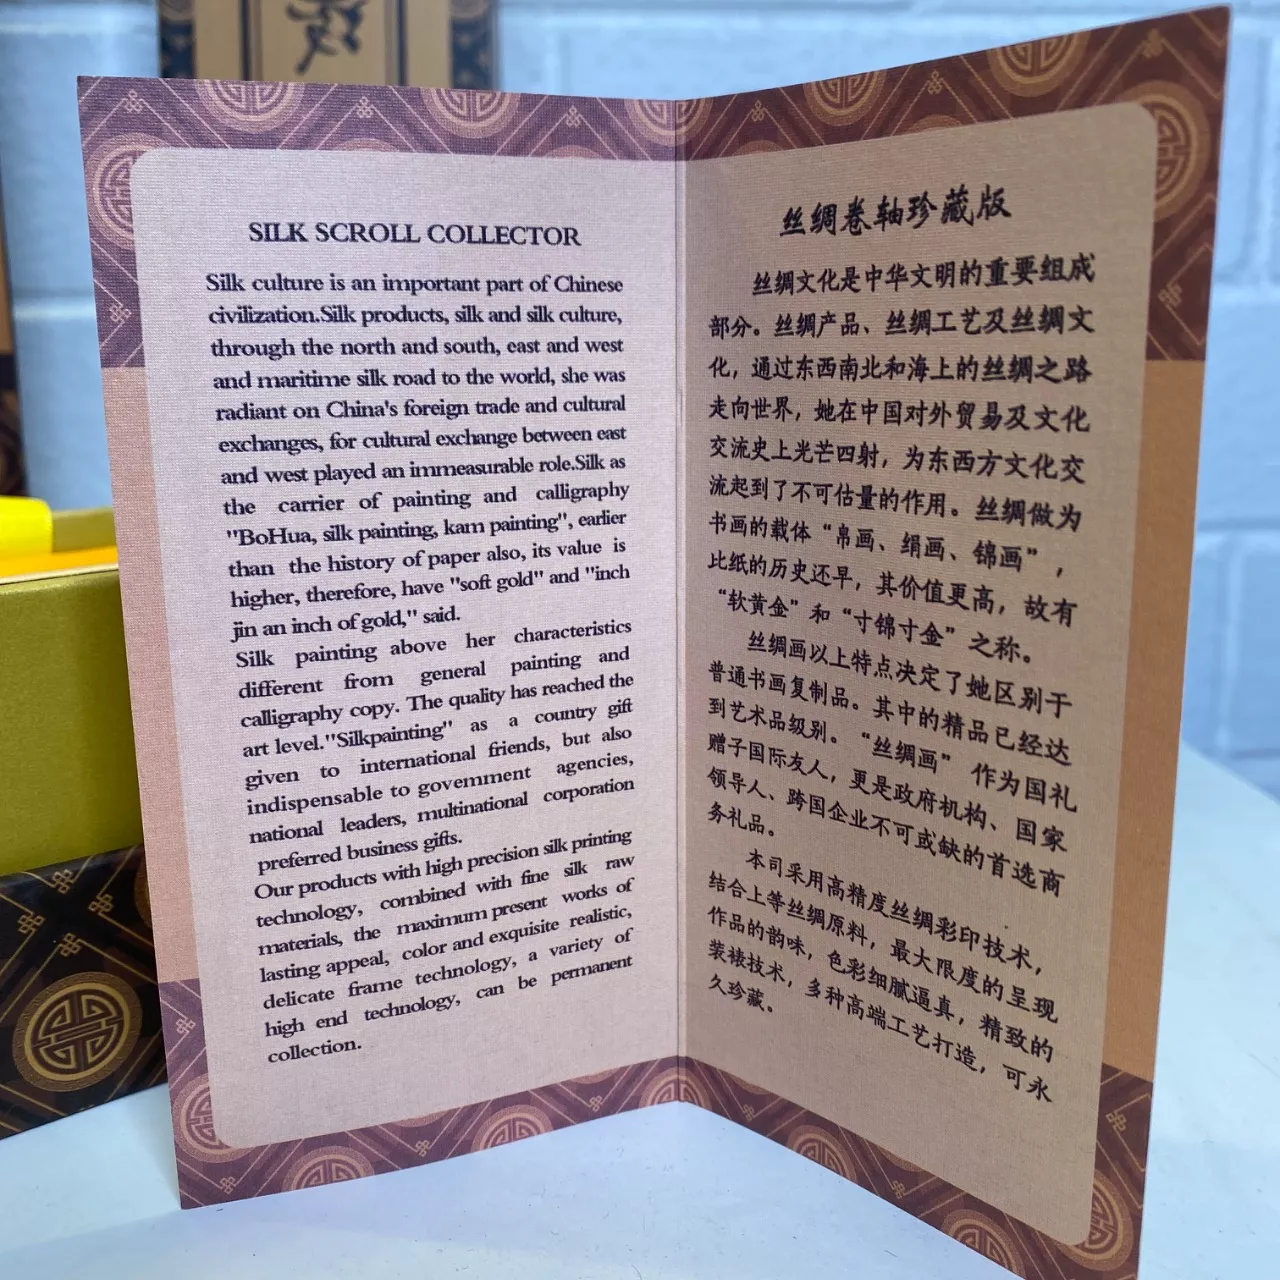 SILK SCROLL COLLECTOR
Silk culture is an important part of Chinese
civilization.Silk products, silk and silk culture,
through the north and south, east and west
and maritime silk road to the world, she was
radiant on China's foreign trade and cultural
exchanges, for cultural exchange between east
and west played an immeasurable role.Silk as
the carrier of painting and calligraphy
"BoHua, silk painting, kam painting", earlier
than the history of paper also, its value is
higher, therefore, have "soft gold" and "inch
jin an inch of gold," said.
Silk painting above her characteristics
different from general painting and
calligraphy copy. The quality has reached the
art level."Silkpainting" as a country gift
given to international friends, but also
indispensable to government agencies,
national leaders, multinational corporation
preferred business gifts.
Our products with high precision silk printing
technology, combined with fine silk raw
materials, the maximum present works of
lasting appeal, color and exquisite realistic,
delicate frame technology, a variety of
high end technology, can be permanent
collection.
丝绸卷轴珍藏版
丝绸文化是中华文明的重要组成
部分。丝绸产品、丝绸工艺及丝绸文
化，通过东西南北和海上的丝绸之路
走向世界，她在中国对外贸易及文化
交流史上光芒四射，为东西方文化交
流起到了不可估量的作用。丝绸做为
书画的载体“帛画、绢画、锦画”，
比纸的历史还早，其价值更高，故有
“软黄金”和“寸锦寸金”之称。
丝绸画以上特点决定了她区别于
普通书画复制品。其中的精品已经达
到艺术品级别。“丝绸画”作为国礼
赠子国际友人，更是政府机构、国家
领导人、跨国企业不可或缺的首选商
务礼品。
本司采用高精度丝绸彩印技术，
结合上等丝绸原料，最大限度的呈现
作品的韵味，色彩细腻逼真，精致的
装裱技术，多种高端工艺打造，可永
久珍藏。